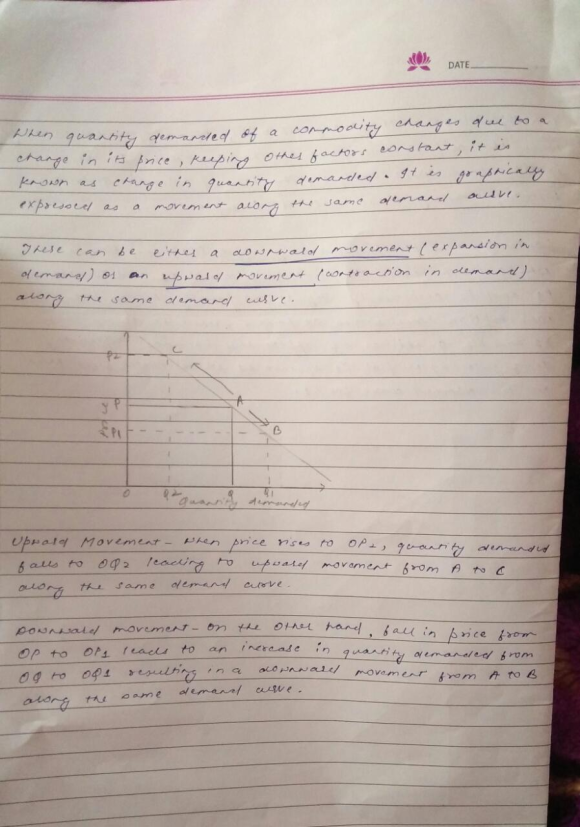 DATE
When quantity demanded of a commodity changes due to a
change in its price, keeping other factors constant, it is
known as change in quantity demanded. It is graphically
expressed as a movement along the same demand curve.
These can be either a downward movement (expansion in
demand) or an upward movement (contraction in demand)
along the same demand curve.
P2 C
P A
P1 B
O Q2 Q Q1
Quantity demanded
Upward Movement - When price rises to OP2, quantity demanded
falls to OQ2 leading to upward movement from A to C
along the same demand curve.
Downward movement - On the other hand, fall in price from
OP to OP1 leads to an increase in quantity demanded from
OQ to OQ1 resulting in a downward movement from A to B
along the same demand curve.